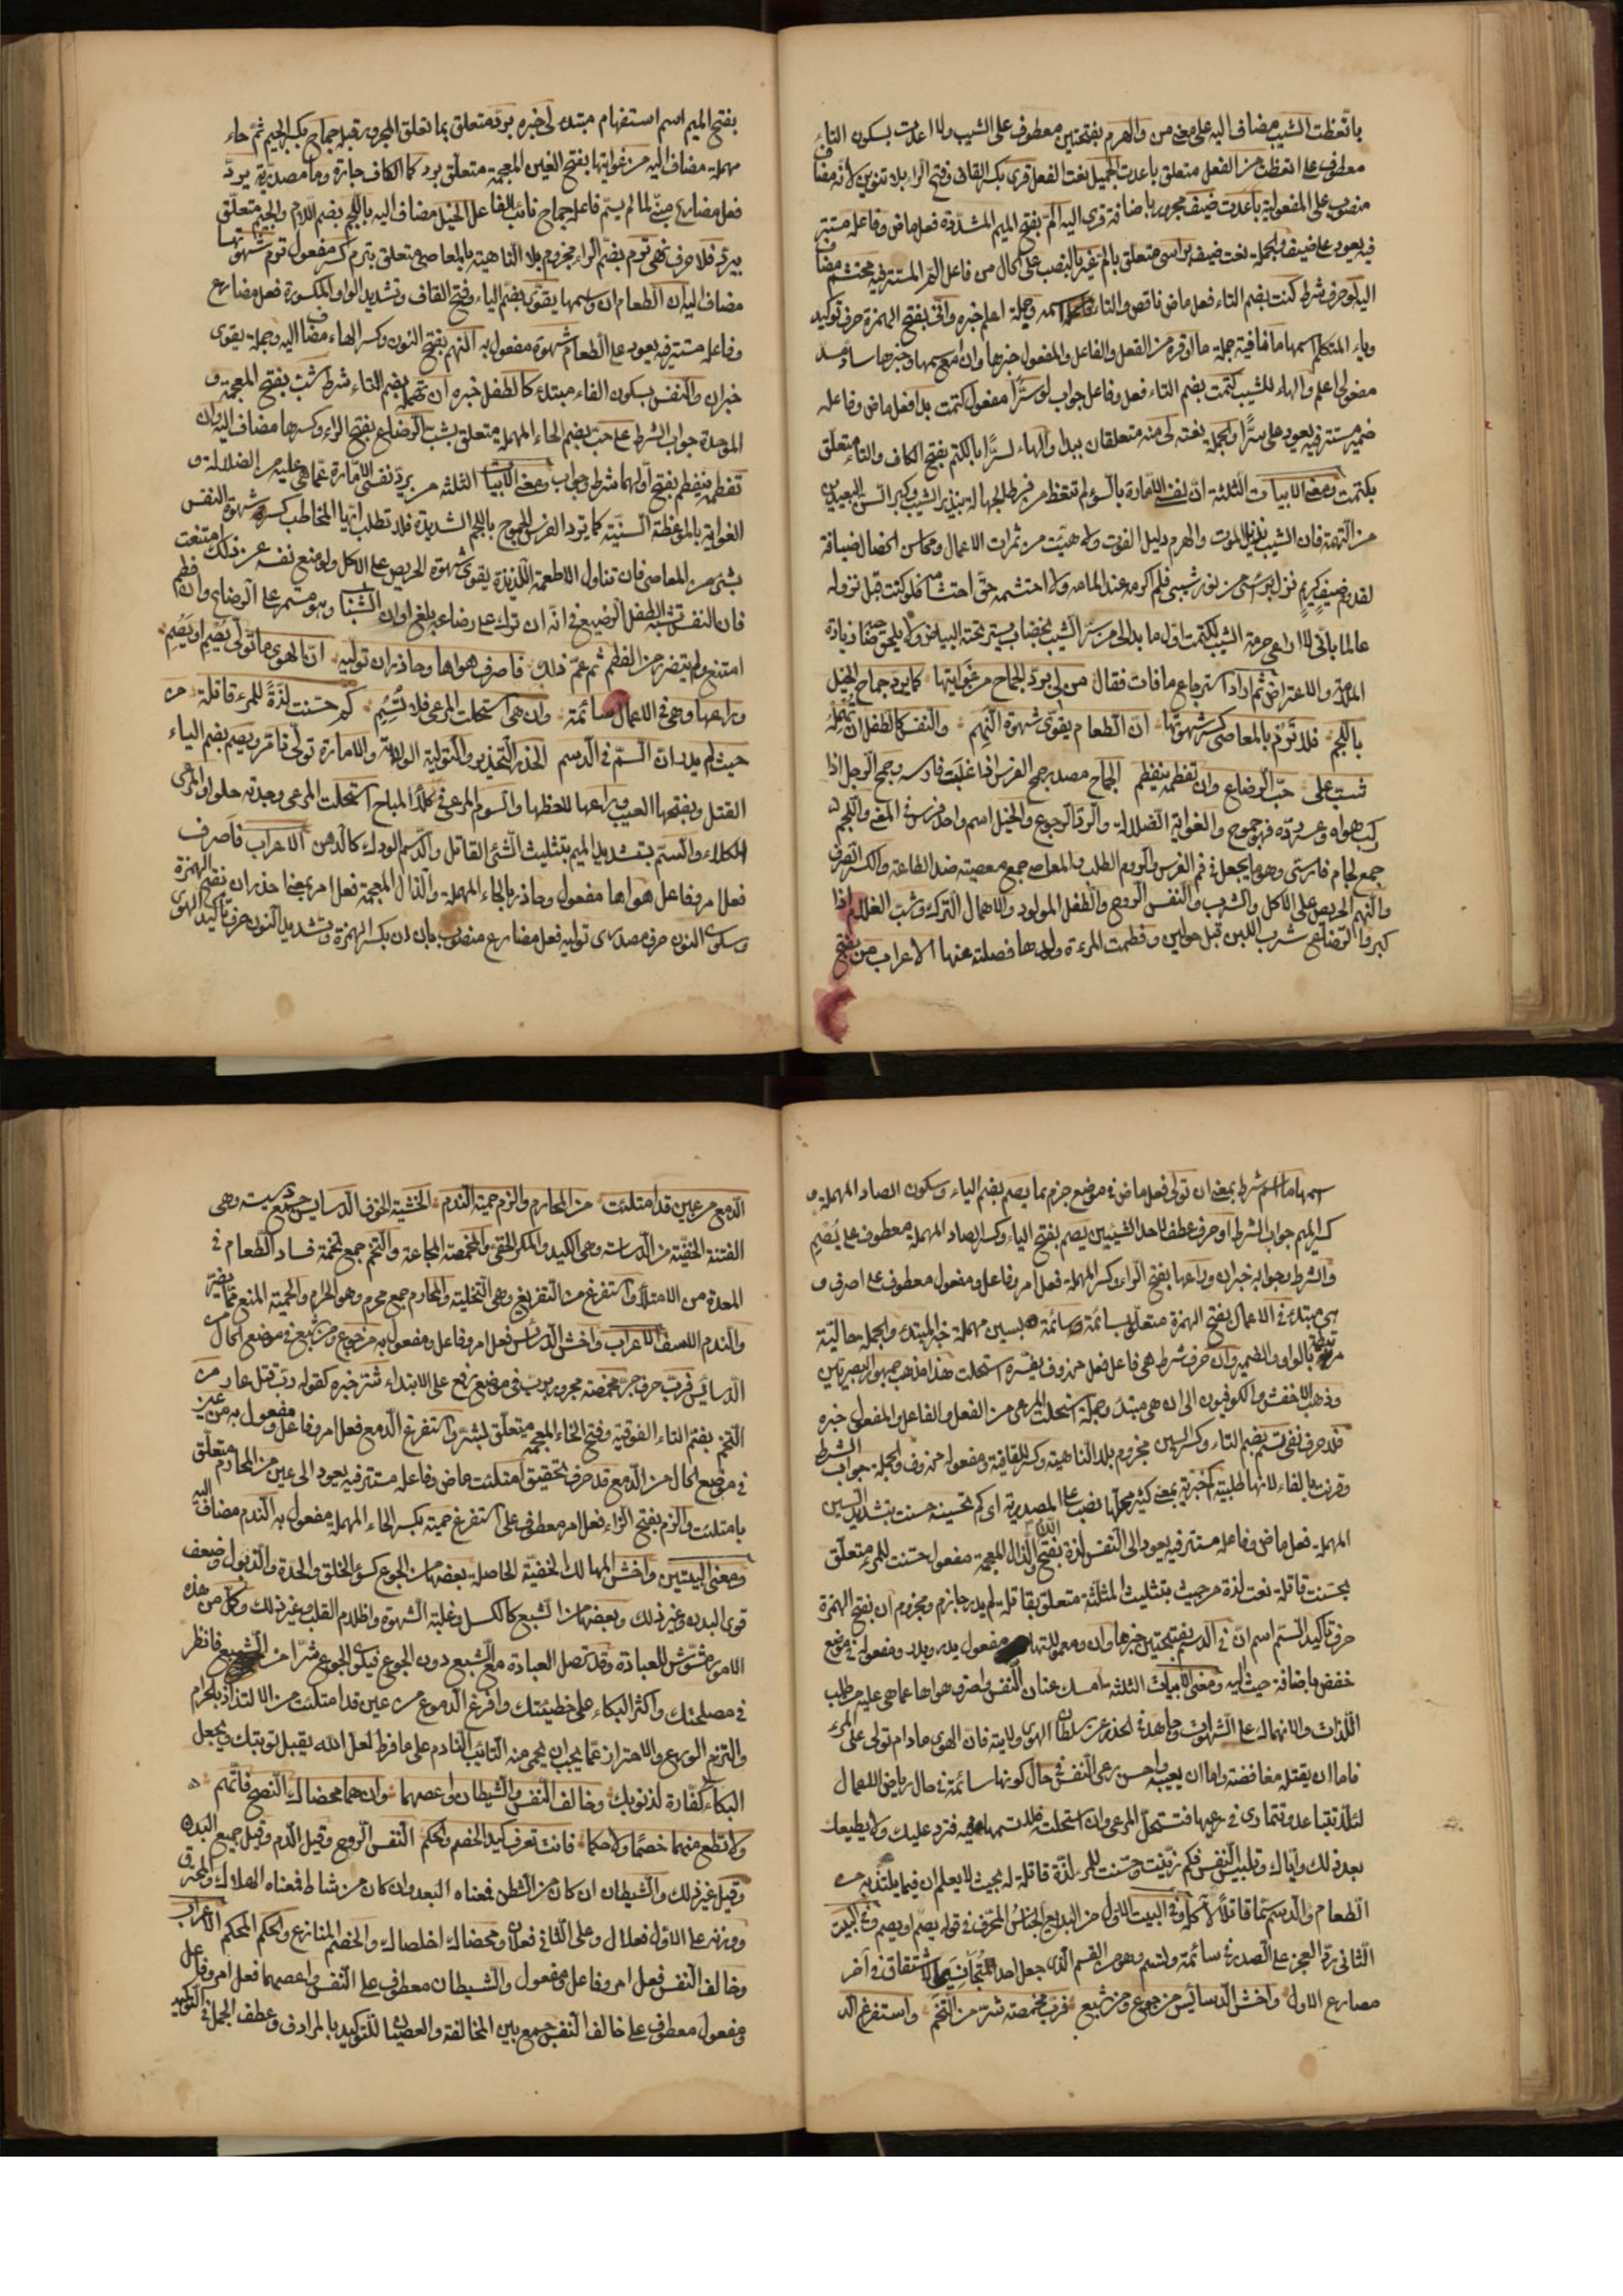 باتعظت الشيب مضاف اليه على معنى من والهرم بفتحتين معطوف على الشيب ولا اعدت بسكون التاء
معطوف على اتعظت من الفعل متعلق باعدت الجميل نعت الفعل قرى بكسر القاف وفتح الراء بلا تنوين لانه مضاف
منصوب على المفعولية باعدت ضيف مجرور باضافة قرى اليه الم بفتح الميم المشددة فعل ماض وفاعله مستتر
فيه يعود على ضيف والجملة نعت ضيف براسي متعلق بالم غير بالنصب على الحال من فاعل الم المستتر فيه محتشم مضاف
اليه لو حرف شرط كنت بضم التاء فعل ماض ناقص والتاء اسمه وجملة اعلم خبره واني بفتح الهمزة حرف توكيد
وياء المتكلم اسمها ما نافية جملة ما اوقره من الفعل والفاعل والمفعول خبرها وان مع اسمها وخبرها ساد مسد
مفعولي اعلم والهاء للشيب كتمت بضم التاء فعل وفاعل جواب لو سرا مفعول كتمت بدا فعل ماض وفاعله
ضمير مستتر فيه يعود على سرا والجملة نعته لي منه متعلقان ببدا والهاء لسرا بالكتم بفتح الكاف والتاء متعلق
بكتمت ومعنى الابيات الثلثة ان نفسي الامارة بالسوء لم تتعظ من فرط الجهالة بنذير الشيب وكبر السن البعيدين
من التهمة فان الشيب نذير الموت والهرم دليل الفوت ولا هيئت من ثمرات الاعمال ومحاسن الخصال ضيافة
لقدوم ضيف كريم نزل براسي من نور شيبي فلم اكرمه عند المامه ولا احتشمه حق احتشامه فلو كنت قبل نزوله
عالما باني لا اراعي حرمة الشيب لكتمت اول ما بدا لي من سر الشيب بخضاب يستر تحته البياض ولا يلحق زيادة
الملامة والاعتراض ثم اراد استرجاع ما فات فقال من لي برد الجماح من غوايتها كما يرد جماح الخيل
باللجم فلا ترم بالمعاصي كسر شهوتها ان الطعام يقوي شهوة النهم والنفس كالطفل ان تهمله
شب على حب الرضاع وان تفطمه ينفطم الجماح مصدر جمح الفرس اذا غلبت فارسه وجمح الرجل اذا
ركب هواه وعسر رده فهو جموح والغواية الضلالة والرد الرجوع والخيل اسم واحد فرس في المعنى واللجم
جمع لجام فارسي وهو ما يجعل في فم الفرس والروم الطلب والمعاصي جمع معصية ضد الطاعة والكسر الصرف
والنهم الحريص على الاكل والشرب والنفس الروح والطفل المولود والاهمال الترك وشب الغلام اذا
كبر والرضاع شرب اللبن قبل حولين وفطمت المرءة ولدها فصلته عنها الاعراب من بفتح
بفتح الميم اسم استفهام مبتدء لي خبره برد متعلق بما تعلق المجرور قبله جماح بكسر الجيم ثم حاء
مهملة مضاف اليه من غوايتها بفتح الغين المعجمة متعلق برد كما الكاف جارة وما مصدرية يرد
فعل مضارع مبني لما لم يسم فاعله جماح نائب الفاعل الخيل مضاف اليه باللجم بضم اللام والجيم متعلق
بيرد فلا حرف نهي ترم بضم الراء مجزوم بلا الناهية بالمعاصي متعلق بترم كسر مفعول ترم شهوتها
مضاف اليه ان الطعام ان واسمها يقوي بضم الياء وفتح القاف وتشديد الواو المكسورة فعل مضارع
وفاعله مستتر فيه يعود على الطعام شهوة مفعول به النهم بفتح النون وكسر الهاء مضاف اليه وجملة يقوي
خبر ان والنفس بسكون الفاء مبتدء كالطفل خبره ان تهمله بضم التاء شرط شب بفتح المعجمة و
الموحدة جواب الشرط على حب بضم الحاء المهملة متعلق بشب الرضاع بفتح الراء وكسرها مضاف اليه وان
تفطمه ينفطم بفتح اولهما شرط وجواب ومعنى الابيات الثلثة من يرد نفسي الامارة عما هي عليه من الضلالة و
الغواية بالموعظة السنية كما يرد الفرس الجموح باللجم الشديدة فلا تطلب ايها المخاطب كسر شهوة النفس
بشئ من المعاصي فان تناول الاطعمة اللذيذة يقوي شهوة الحريص على الاكل ولو منع نفسه عن ذلك امتنعت
فان النفس تشبه الطفل الرضيع في انه ان ترك على رضاعه بلغ اوان الشباب وهو مستمر على الرضاع وان فطم
امتنع ولم يتضرر من الفطم ثم عم ذلك فاصرف هواها وحاذر ان توليه ان الهوى ما تولى يصم او يصم
وراعها وهي في الاعمال سائمة وان هي استحلت المرعى فلا تسم كم حسنت لذة للمرء قاتلة من
حيث لم يدر ان السم في الدسم الحذر التحذير والتولية الولاية والامارة تولى تامر ويصم بضم الياء
القتل وبفتحها العيب وراعها لاحظها والسوم الرعي في كلأ المباح استحلت المرعى وجدته حلوا والمرعى
الكلاء والسم بتشديد الميم بتثليث الشئ القاتل والدسم الودك كالدهن الاعراب فاصرف
فعل امر وفاعل هواها مفعول وحاذر بالحاء المهملة والذال المعجمة فعل امر بمعنى احذر ان بفتح الهمزة
وسكون النون حرف مصدري توليه فعل مضارع منصوب بان ان بكسر الهمزة وتشديد النون حرف تاكيد الهوى
اسمها ما اسم شرط بمعنى ان تولى فعل ماض في موضع جزم بما يصم بضم الياء وسكون الصاد المهملة و
كسر الميم جواب الشرط او حرف عطف لاحد الشيئين يصم بفتح الياء وكسر الصاد المهملة معطوف على يصم
والشرط وجوابه خبر ان وراعها بفتح الراء وكسر المهملة فعل امر وفاعل ومفعول معطوف على اصرف و
هي مبتدء في الاعمال بفتح الهمزة متعلق بسائمة وسائمة بسين مهملة خبر المبتدء والجملة حالية
مرتبطة بالواو والضمير وان حرف شرط هي فاعل فعل محذوف يفسره استحلت هذا مذهب جمهور البصريين
وذهب الاخفش والكوفيون الى ان هي مبتدء وجملة استحلت المرعى من الفعل والفاعل والمفعول خبره
فلا حرف نفي تسم بضم التاء وكسر السين مجزوم بلا الناهية وكسر للقافية ومفعوله محذوف والجملة جواب الشرط
وقرنت بالفاء لانها طلبية كم خبرية بمعنى كثير محلها نصب على المصدرية اي كم تحسينة حسنت بتشديد السين
المهملة فعل ماض وفاعله مستتر فيه يعود الى النفس لذة بفتح اللام والذال المعجمة مفعول حسنت للمرء متعلق
بحسنت قاتلة نعت لذة من حيث بتثليث المثلثة متعلق بقاتلة لم يدر جازم ومجزوم ان بفتح الهمزة
حرف تاكيد السم اسم ان في الدسم بفتحتين خبرها وان ومعمولاتها مفعول يدر ويدر ومفعوله في موضع
خفض باضافة حيث اليه ومعنى الابيات الثلثة امسك عنان النفس واصرف هواها عما هي عليه من طلب
اللذات والانهماك على الشهوات وجاهد في الحذر عن سلطان الهوى وولايته فان الهوى مادام تولى على المرء
فاما ان يقتله مغافضة واما ان يعيبه واحسن رعي النفس في حال كونها سائمة في حال رياض الاعمال
لئلا تتباعد وتتمادى في رعيها فتستحل المرعى وان استحلت فلا تسمها فيه فترد عليك ولا يطيعك
بعد ذلك واياك وتلبيس النفس فكم زينت وحسنت للمرء لذة قاتلة له بحيث لا يعلم ان فيما يلتذ به من
الطعام والدسم سما قاتلا لآكله وفي البيت الاول من البديع الجناس المحرف في قوله يصم او يصم وفي البيت
الثاني رد العجز على الصدر في سائمة ولتسم وهو من القسم الذي جعل احد المتجانسين الاشتقاق في آخر
مصارع الاول واخش الدسائس من جوع ومن شبع فرب مخمصة شر من التخم واستفرغ الد
الدمع من عين قد امتلئت من المحارم والزم حمية الندم الخشية الخوف الدسايس جمع دسيسة وهي
الفتنة الخفية من الدساسة وهي الكيد والمكر الخفي والمخمصة المجاعة والتخم جمع تخمة فساد الطعام في
المعدة من الامتلاء واستفرغ من التفريغ وهي التخلية والمحارم جمع محرم وهو الحرام والحمية المنع مما يضر
والندم الاسف الاعراب واخش الدسائس فعل امر وفاعل ومفعول به من جوع ومن شبع في موضع الحال من
الدسائس فرب حرف جر مخمصة مجرور برب في موضع رفع على الابتداء شر خبره كقوله ورب قتل عار من
التخم بضم التاء الفوقية وفتح الخاء المعجمة متعلق بشر واستفرغ الدمع فعل امر وفاعل ومفعول به من عين
في موضع الحال من الدمع قد حرف تحقيق امتلئت ماض وفاعله مستتر فيه يعود الى عين من المحارم متعلق
بامتلئت والزم بفتح الزاء فعل امر معطوف على استفرغ حمية بكسر الحاء المهملة مفعول به الندم مضاف اليه
ومعنى البيتين واخش المهالك الخفية الحاصلة بعضها من الجوع كسوء الخلق والحدة والذبول وضعف
قوى البدن وغير ذلك وبعضها من الشبع كالكسل وغلبة الشهوة واظلام القلب وغير ذلك وكل من هذه
الامور مشوش للعبادة وقد تحصل العبادة مع الشبع دون الجوع فيكون الجوع شرا من الشبع فانظر
في مصلحتك واكثر البكاء على خطيئتك وافرغ الدموع من عين قد امتلئت من الالتذاذ بالحرام
والتزم الورع والاحتراز عما يجب ان يحمي منه التائب النادم على ما فرط لعل الله يقبل توبتك ويجعل
البكاء كفارة لذنوبك وخالف النفس والشيطان واعصهما وان هما محضاك النصح فاتهم
ولا تطع منهما خصما ولا حكما فانت تعرف كيد الخصم والحكم النفس الروح وقيل الدم وقيل جميع البدن
وقيل غير ذلك والشيطان ان كان من الشطن فمعناه البعد وان كان من شاط فمعناه الهلاك والمحترق
ووزنه على الاول فعلال وعلى الثاني فعلان ومحضاك اخلصاك والخصم المنازع والحكم المحكم الاعراب
وخالف النفس فعل امر وفاعل ومفعول والشيطان معطوف على النفس واعصهما فعل امر وفاعل
ومفعول معطوف على خالف النفس جمع بين المخالفة والعصيان للتوكيد بالمرادف وعطف الجمل في التوكيد